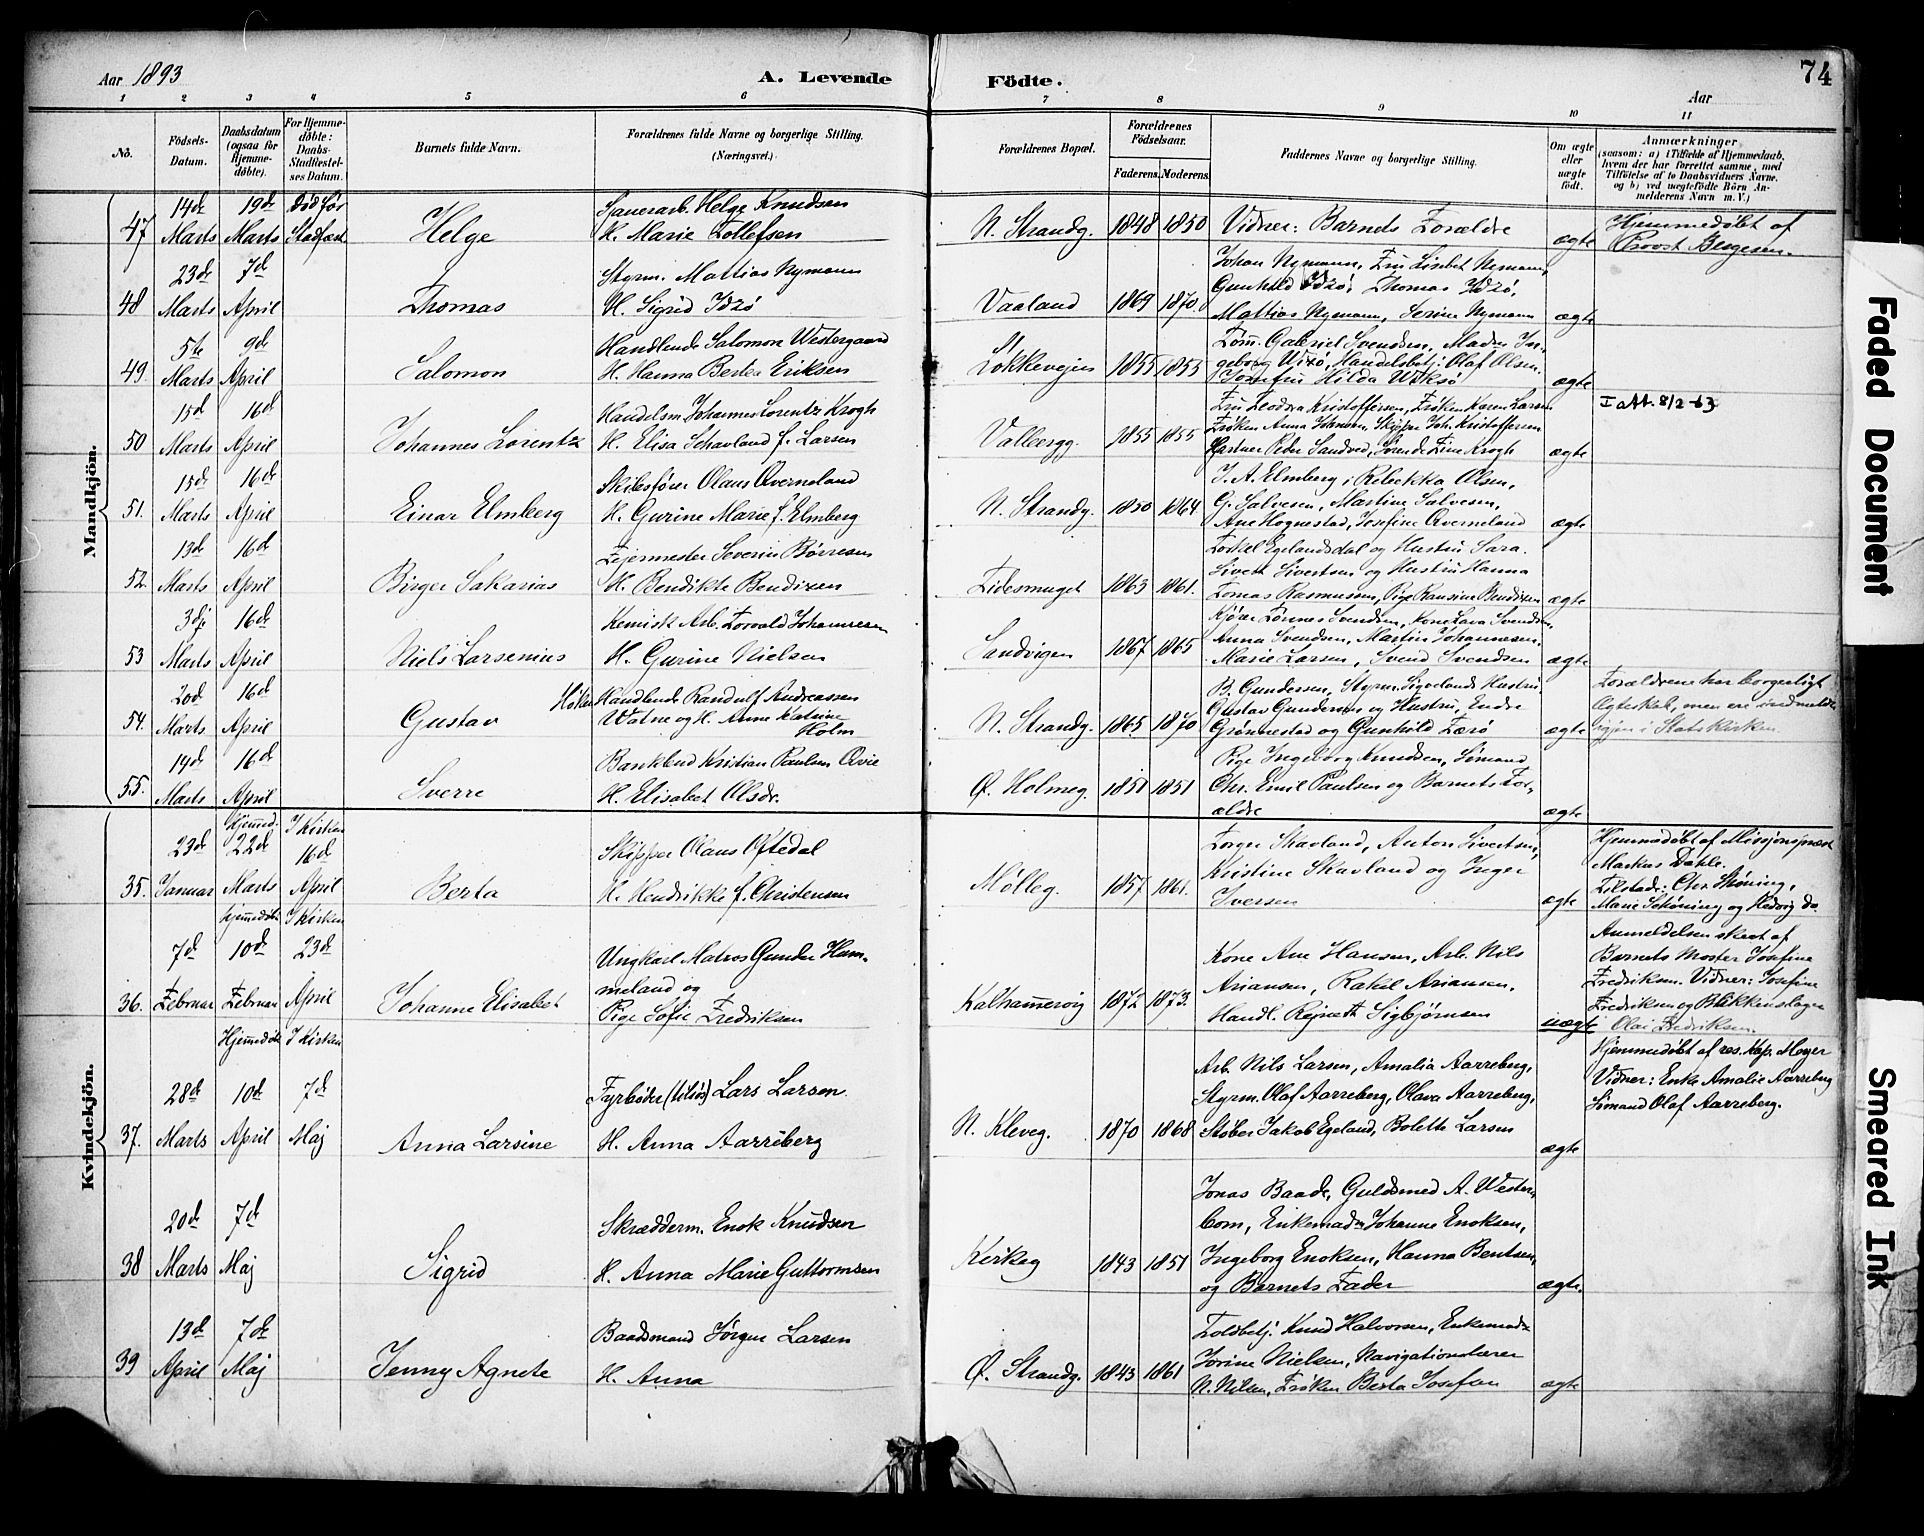 Aar 1893
A. Levende
Fødte.
74
Aar
1 2 3 4 5 6 7 8 9 10 11
No.
Fødsels-
Datum.
Daabsdatum
(ogsaa for
Hjemme-
døbte).
For Hjemme-
døbte:
Daabs-
Stadfæstel-
ses Datum.
Barnets fulde Navn.
Forældrenes fulde Navne og borgerlige Stilling.
(Næringsvei.)
Forældrenes Bopæl.
Forældrenes
Fødselsaar.
Faderens. Moderens.
Faddernes Navne og borgerlige Stilling.
Om ægte
eller
uægte
født.
Anmærkninger
(saasom: a) i Tilfælde af Hjemmedaab,
hvem der har forrettet samme, med
Tilføielse af to Daabsvidners Navne.
og b) ved uægtefødte Børn An-
melderens Navn m. V.)
Mandkjøn.
47 14de Marts 19de Marts Død før Stadfæst
Helge
Helge Knudsen
H. Marie Tollefsen
N. Strandg. 1848 1850
Vidner: Barnets Forældre
ægte
Hjemmedøbt af
Provst Bergesen.
48 23de Marts 7de April
Thomas
Styrm. Mattias Nymann
H. Sigrid Idsø
Vaaland 1869 1870
Johan Nymann, Fru Lisbet Nymann,
Gunhild Idsø, Thomas Idsø,
Mattias Nymann, Serine Nymann
ægte
49. 5te Marts 9de April
Salomon
Handlende Salomon Westergaard
H. Hanna Bertea Eriksen
Løkkeveien 1855 1855
Gabriel Svendsen, Madm In-
geborg Handelsbetj: Olaf Olsen.
Jomfru Hilda
ægte
50 15de Marts 16de April
Johannes Lorentz
Handelsm. Johannes Lorentz Krogh
H. Elisa Schavland f. Larsen
Valbergg. 1855 1855
Fru Kristoffersen, Frøken Karen Larsen
Frøken Anna Johnsen, Skipper Joh. Kristoffersen
Peder Sandved, Krogh
ægte
I att. 8/2-63
51. 15de Marts 16de April
Einar Elmberg
Skibsfører Olaus Qverneland
H. Gurine Marie f. Elmberg
N. Strandg. 1850 1864
J. A. Elmberg, Rebekka Olsen,
G. Salvesen, Martine Salvesen,
Ane Hognestad, Josefine Qverneland
ægte
52 13de Marts 16de April
Birger Sakarias
Leiermester Severin Børresen
H. Bendikte Bendixen
Lidesmuget 1863 1861.
Torkel Egelandsdal og Hustru Sara.
Sivert Sivertsen og Hustru Hanna
Tomas Rasmussen, Pige Ransine Bendixen
ægte
53 3dje Marts 16de April
Niels Larsenius
Kemisk Arb. Torvald Johannesen
H. Gurine Nielsen
Sandvigen 1867 1865
Tønnes Svendsen, Kone Lava Svendsen,
Anna Svendsen, Martin Johannesen,
Marie Larsen, Svend Svendsen
ægte
54. 20de Marts 16de April
Gustav
Høker Handlende Randulf Andreassen
Watne og H. Anne Katrine
Holm
N. Strandg. 1865 1870
B. Gundersen, Styrm. Sigvelands Hustru
Gustav Gundersen og Hustru, Endre
Grønnestad og Gunhild Tærø
ægte
Forældrene har borgerligt
Ægteskab, men ere indmeldte
igjen i Statskirken
55. 14de Marts 16de April
Sverre
Bankbud Kristian Paulsen Qvie
H. Elisabet Olsdr.
Ø. Holmeg. 1851 1851
Pige Ingeborg Knudsen, Sømand
Chr. Emil Paulsen og Barnets For-
ældre
ægte
Kvindekjøn.
35. 23de Januar Hjemmed. 22de Marts I Kirken 16de April
Berta
Skipper Olaus Oftedal
H. Hendrikke f. Christensen
Mølleg. 1857 1861.
Torger Skavland, Anton Sivertsen,
Kristine Skavland og Inger
Iversen
ægte
Hjemmedøbt af Missjonsprest
Markus Dahle.
Tilstede: Chr. Skøning,
Marie Schøning og Hedvig do
36. 7de Februar Hjemmedøbt 10de Februar I Kirken 23de April
Johanne Elisabet
Ungkarl Matros Gunder Ham-
meland og
Pige Sofie Fredriksen
Kalhammervig 1872 1873.
Kone Ane Hansen, Arb. Nils
Ariansen, Rakel Ariansen,
Handl. Sigbjørnsen
uægte
Anmeldelsen skeet af
Barnets Moster Josefine
Fredriksen. Vidner: Josefine
Fredriksen og Blikkenslager
Olai Fredriksen.
37. 28de Marts Hjemmedøbt 10de April I Kirken 7de Maj
Anna Larsine
Fyrbøder Lars Larsen
H. Anna Aarreberg
N. Kleveg. 1870 1868
Arb. Nils Larsen, Amalia Aarreberg,
Styrm. Olaf Aarreberg, Olava Aarreberg,
Støber Jakob Egeland, Bolette Larsen
ægte
Hjemmedøbt af res. Kap. Meyer
Vidner: Enke Amalie Aarreberg
Sømand Olaf Aarreberg.
38 20de Marts 7de Maj
Sigrid
Skrædderm. Enok Knudsen
H. Anna Marie Guttormsen
Kirkeg 1843 1851
Jonas Baade, Guldsmed A. Wester-
bom, Enkemadm Johanne Enoksen,
Ingeborg Enoksen, Hanna Bentsen,
og Barnets Fader
ægte.
39 13de April 7de Maj
Jenny Agnete
Baadsmand Jørgen Larsen
H. Anna
Ø. Strandg. 1843 1861
Toldbetj. Knud Halvorsen, Enkemadm
Jorine Nielsen, Navigationslærer
N. Nilsen, Frøken Berta Josefsen
ægte
Faded Document
Smeared Ink